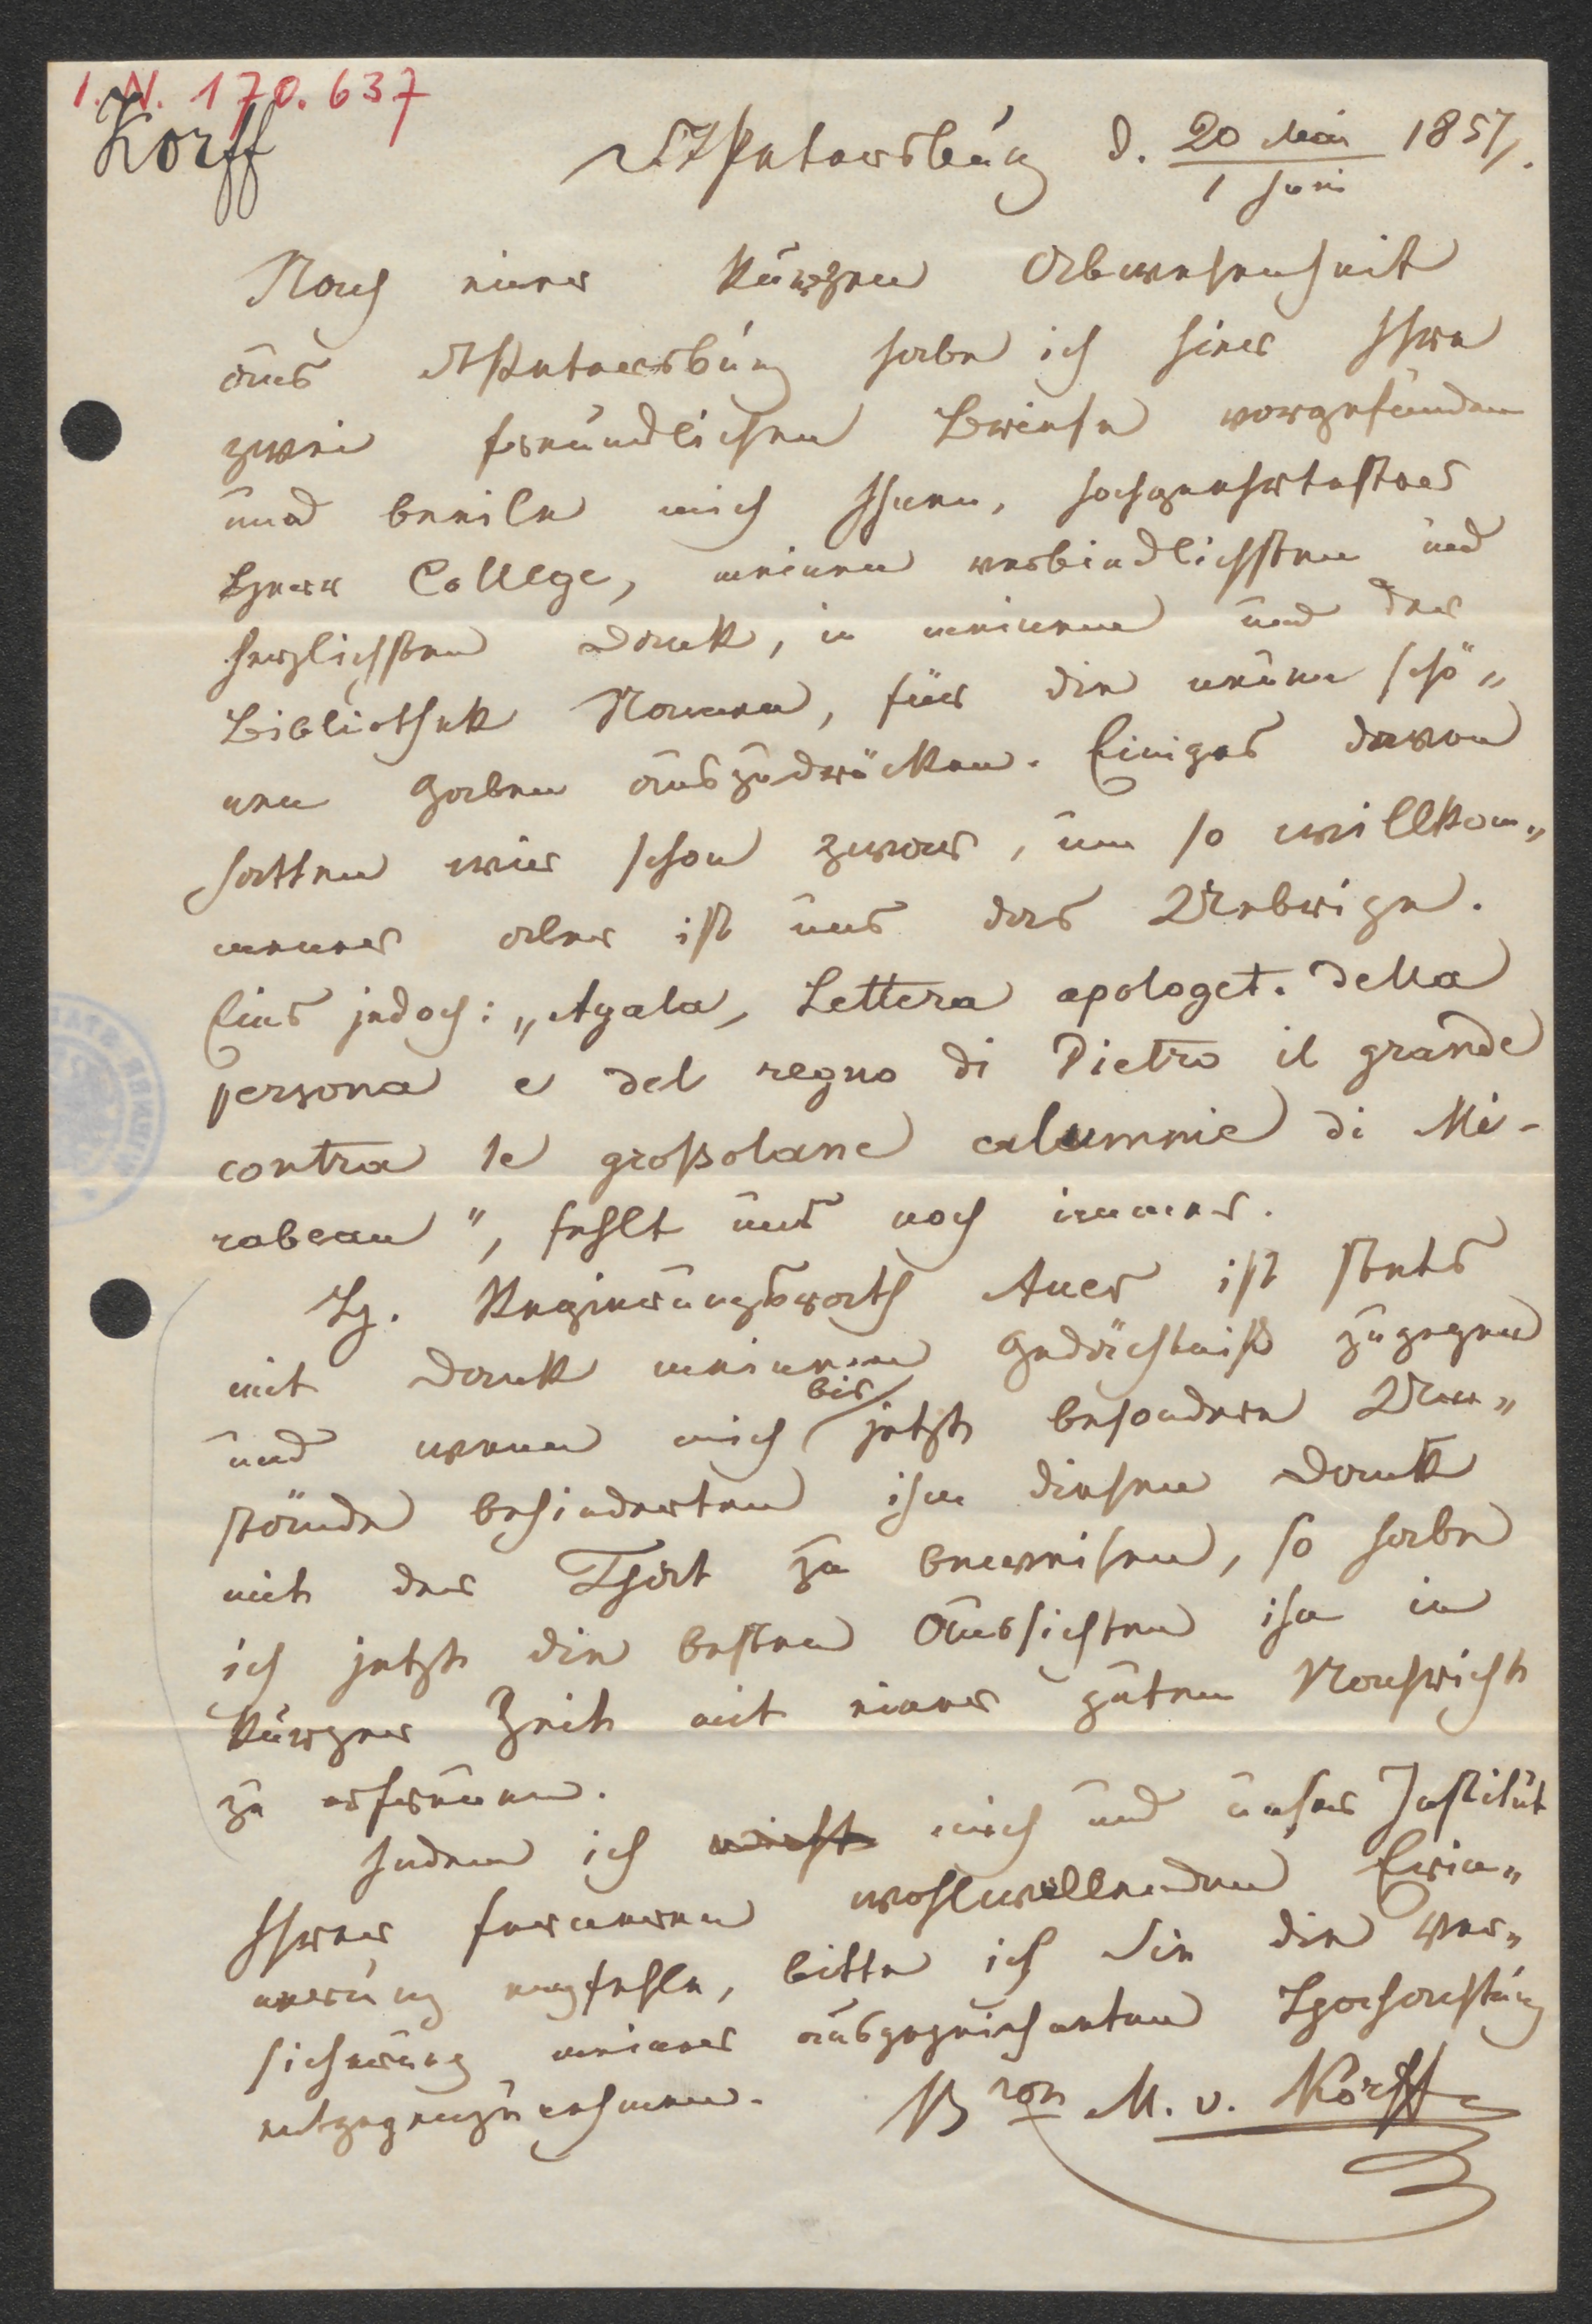 I. N. 170.637
Korff
St Petersburg d. 20 Mai / 1 Juni 1857.
Nach einer kurzen Abwesenheit
aus St Petersburg habe ich hier Ihre
zwei freundlichen Briefe vorgefunden
und beeile mich Ihnen, hochgeehrtester
Herr College, meinen verbindlichsten und
herzlichsten Dank, in meinem und der
Bibliothek Namen, für die neuen schö„
nen Gaben auszudrücken. Einiges davon
hatten wir schon zwar, um so willkom„
mener aber ist uns das Uebrige.
Eins jedoch: „Ayala, Lettera apologet. della
persona e del regno di Pietro il grande
contra le großolane calumnie di Mi-
rabeau", fehlt uns noch immer.
H. Regierungsrath Auer ist stets
mit Dank meinem Gedächtniß zugegen
und wenn mich bis jetzt besondere Um„
stände behinderten ihm diesen Dank
mit der That zu beweisen, so habe
ich jetzt die besten Aussichten ihn in
kurzer Zeit mit einer guten Nachricht
zu erfreuen.
Indem ich nicht mich und unser Institut
Ihrer ferneren wohlwollenden Erin„
nerung empfehle, bitte ich Sie die Ver„
sicherung meiner ausgezeichneten Hochachtung
entgegenzunehmen.
Bron M. v. Korff